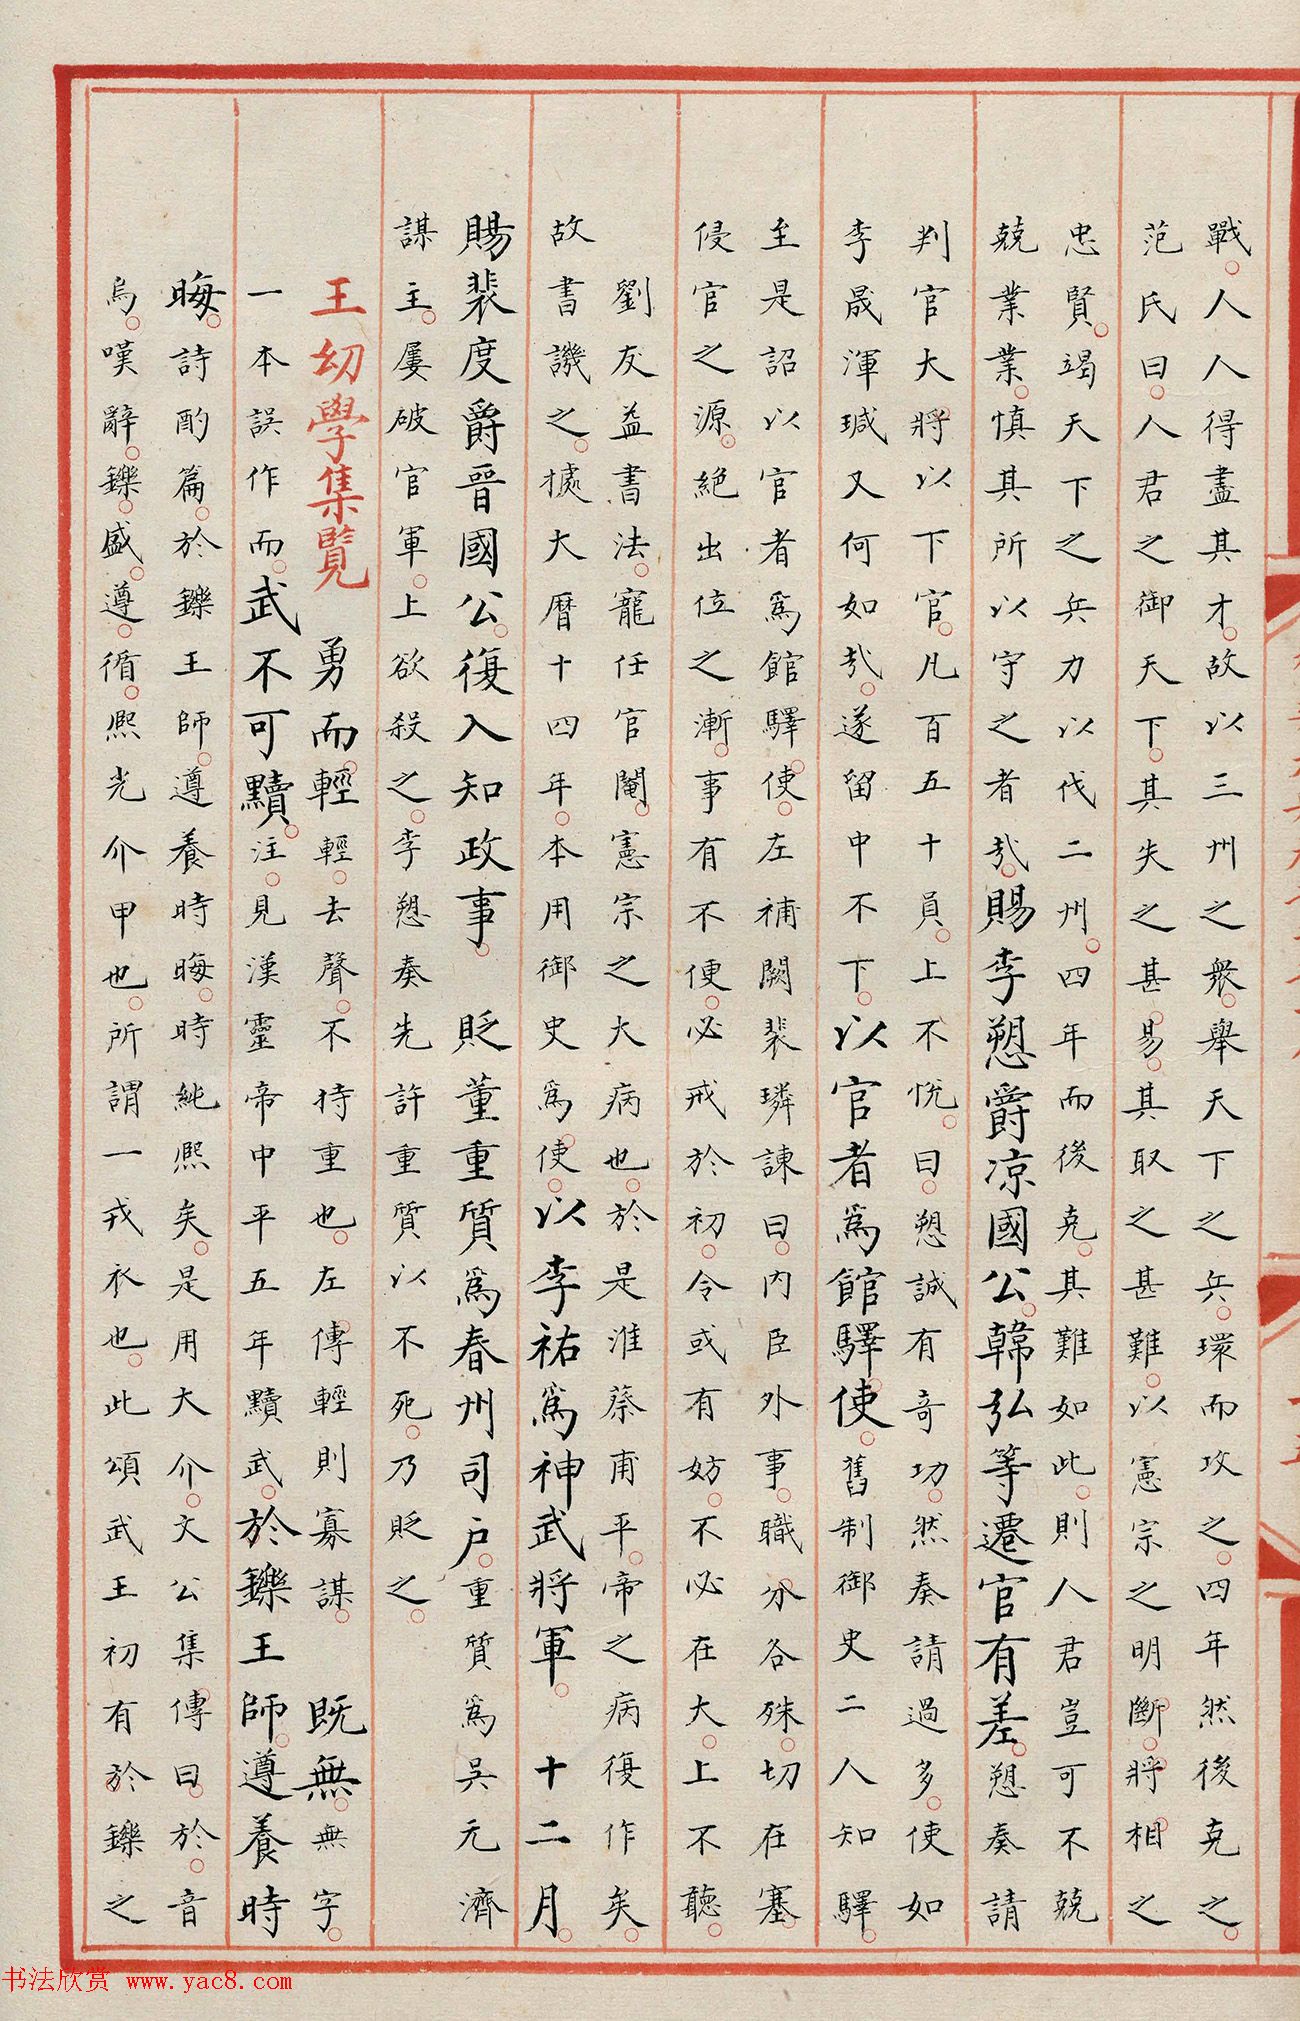 戰。人人得盡其才。故以三州之衆。舉天下之兵。環而攻之。四年然後克之。
范氏曰。人君之御天下。其失之甚易。其取之甚難。以憲宗之明斷。將相之
忠賢。竭天下之兵力以伐二州。四年而後克。其難如此。則人君豈可不兢
兢業業。慎其所以守之者哉。賜李愬爵凉國公。韓弘等遷官有差。愬奏請
判官大將以下官。凡百五十員。上不悅。曰。愬誠有奇功。然奏請過多。使如
李晟渾瑊又何如哉。遂留中不下。以官者爲館驛使。舊制御史二人知驛。
至是詔以官者爲館驛使。左補闕裴璘諫曰。内臣外事。職分各殊。切在塞
侵官之源。絶出位之漸。事有不便。必戒於初。令或有妨。不必在大。上不聽。
劉友益書法。寵任官閹。憲宗之大病也。於是淮蔡甫平。帝之病復作矣。
故書譏之。據大曆十四年。本用御史爲使。以李祐爲神武將軍。十二月。
賜裴度爵晉國公。復入知政事。貶董重質爲春州司户。重質爲吳元濟
謀主。屢破官軍。上欲殺之。李愬奏先許重質以不死。乃貶之。
王幼學集覽 勇而輕。輕。去聲。不持重也。左傳輕則寡謀。 既無。無字。
一本誤作而。武不可黷。注。見漢靈帝中平五年黷武。於鑠王師。遵養時
晦。詩酌篇。於鑠王師。遵養時晦。時純熙矣。是用大介。文公集傳曰。於。音
烏。嘆辭。鑠。盛。遵。循。熙光介甲也。所謂一戎衣也。此頌武王初有於鑠之
书法欣赏 www.yac8.com